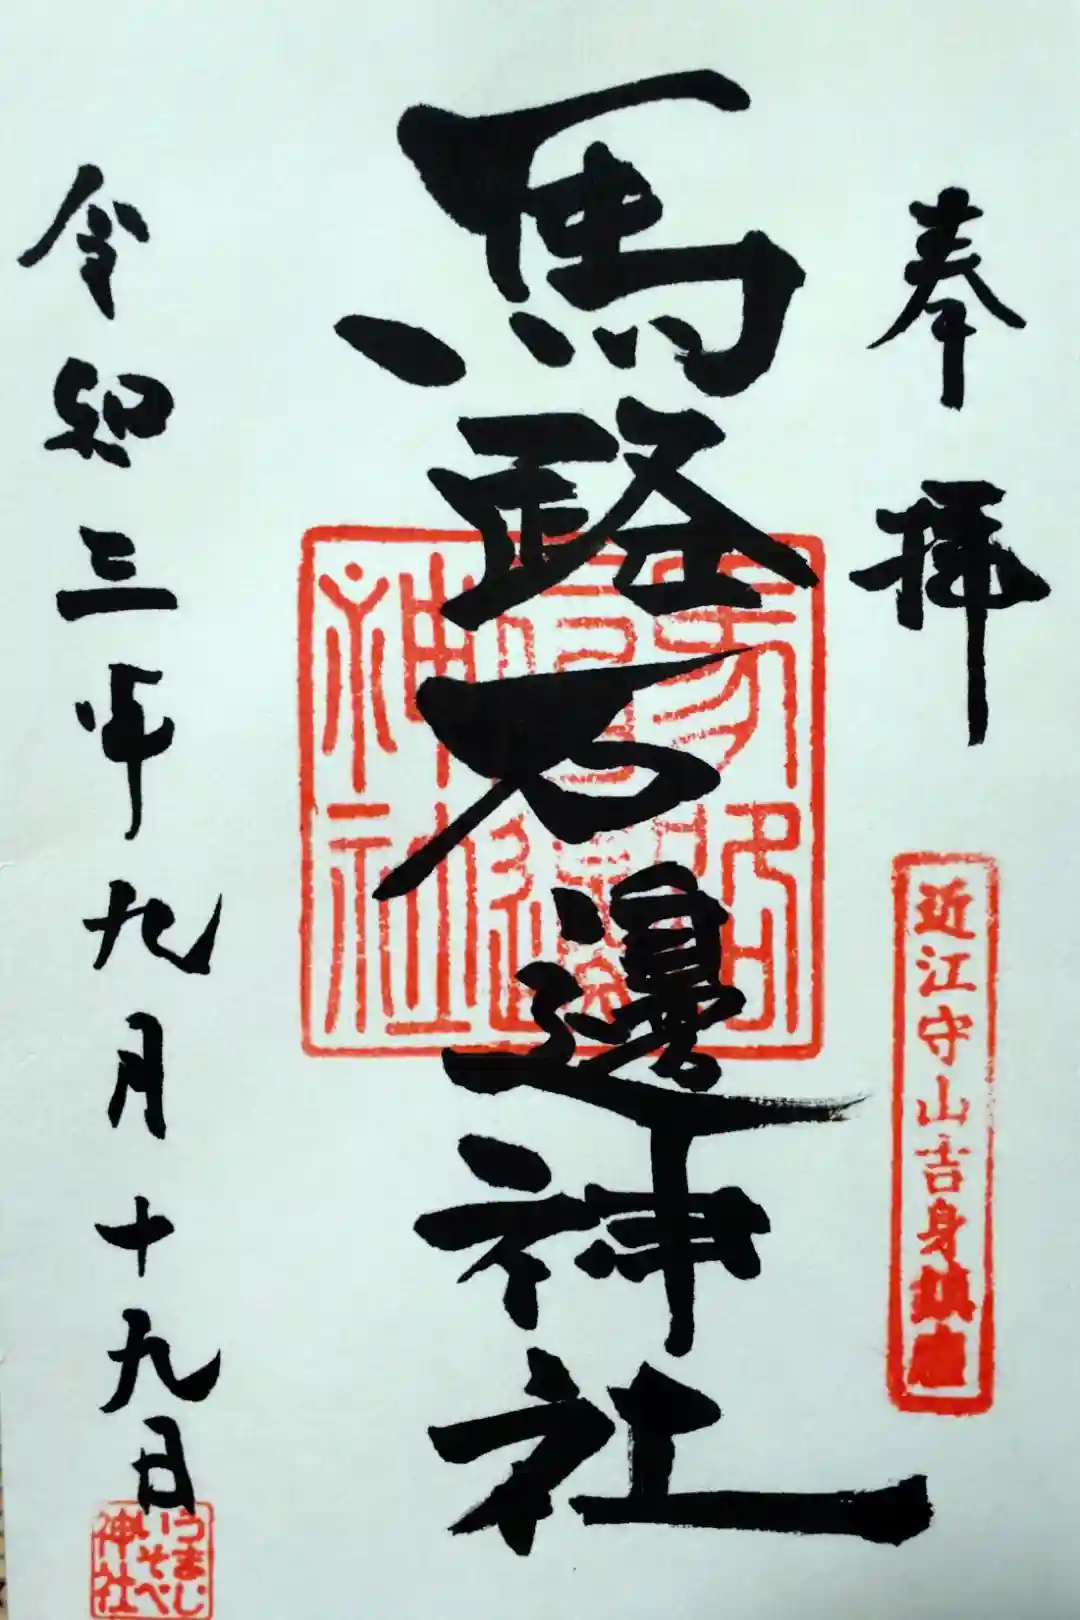 奉拝
近江守山吉身鎮座
馬路石邊神社
馬路石邊神社
令和三年九月十九日
うまじ
いそべ
神社